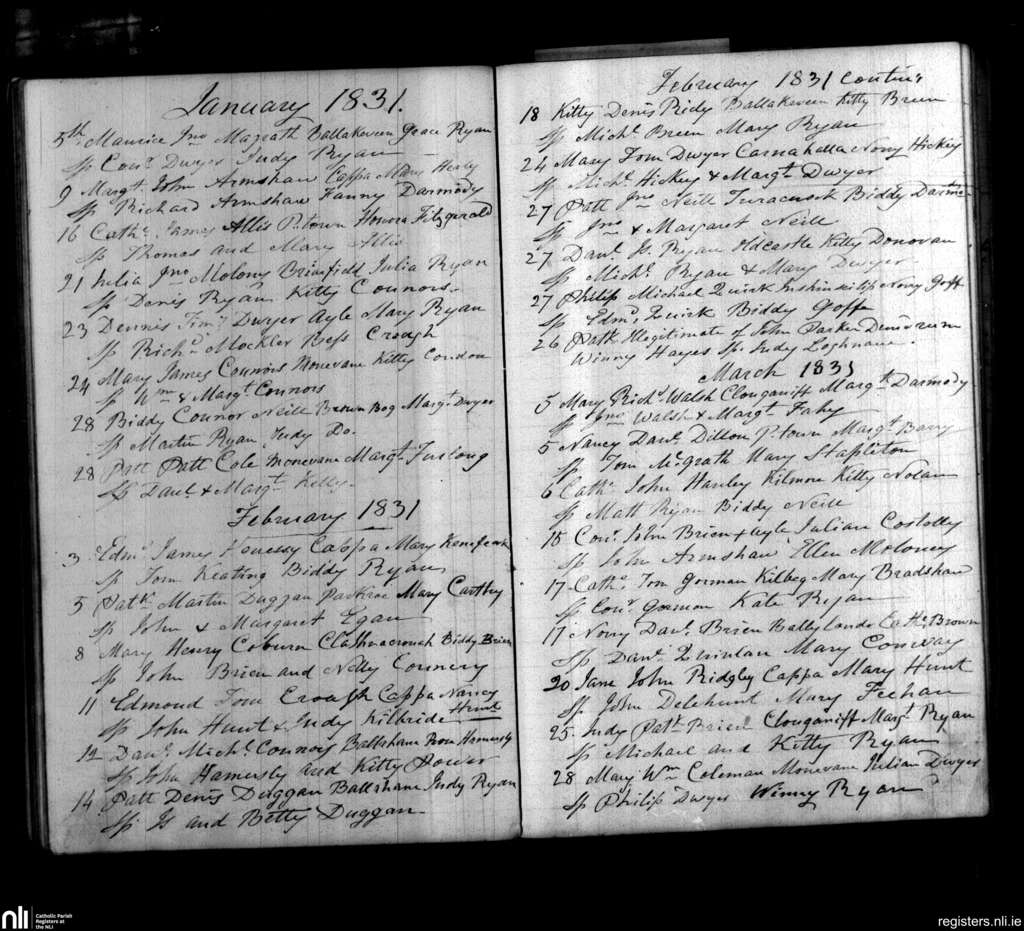 January 1831.
5th Maurice Jno Magrath Ballakeveen Grace Ryan
Sp Conr Dwyer Judy Ryan
9 Margt John Armshaw Cappa Mary Herly
Sp Richard Armshaw Fanny Darmody
16 Cathe James Allis P.town Honora Fitzgerald
Sp Thomas and Mary Allis
21 Julia Jno Molony Briarfield Julia Ryan
Sp Denis Ryan Kitty Connors
23 Dennis Timy Dwyer Ayle Mary Ryan
Sp Richd Mockler Bess Creagh
24 Mary James Connors Monevane Kitty Condon
Sp Wm & Margt Connors
28 Biddy Connor Neill Brown Bog Margt Dwyer
Sp Martin Ryan Judy Do.
28 Patt Patt Cole Monevane Margt Furlong
Sp Danl & Margt Kelly.
February 1831
3 Edmd James Henessy Cappa Mary Kenifeck
Sp Tom Keating Biddy Ryan
5 Patk Martin Duggan Parkroe Mary Carthy
Sp John & Margaret Egan
8 Mary Henry Coburn Clashnacrouah Biddy Brien
Sp John Brien and Nelly Connery
11 Edmond Tom Croagh Cappa Nancy
Hunt
Sp John Hunt & Judy Kilbride
12 Danl Michl Connors Ballahane Hamersly
Sp John Hamersly and Kitty Power
14 Patt Denis Duggan Ballahane Judy Ryan
Sp Js and Betty Duggan
February 1831 Contind
18 Kitty Denis Ridy Ballakeveen Kitty Breen
Sp Michl Breen Mary Ryan
24 Mary Tom Dwyer Carnahalla Nony Hickey
Sp Michl Hickey & Margt Dwyer
27 Patt Jno Neill Turacush Biddy
Sp Jno & Margaret Neill
27 Danl Js Ryan Oldcastle Kitty Donovan
Sp Michl Ryan & Mary Dwyer
27 Philip Michael Quirk Nony Goff
Sp Edmd Quirk Biddy Goffe
26 Patk Illegitimate of John Parker
Winny Hayes Sp. Judy Loghnane.
March 1831
5 Mary Richd Walsh Clouganiff Margt Darmody
Sp Jno Walsh & Margt Fahy
5 Nancy Danl Dillon P.town Margt Barry
Sp Tom McGrath Mary Stapleton
6 Cathe John Hanley Kilmore Kitty Nolan
Sp Matt Ryan Biddy Neill
15 Conr John Brien Ayle Julian Costolloy
Sp John Armshaw Ellen Moloney
17 Cathe Tom Gorman Kilbeg Mary Bradshaw
Sp Conr Gorman Kate Ryan
17 Nony Danl Brien Ballylande Cathe Brown
Sp Danl Quinlan Mary Conway
20 Jane John Ridgley Cappa Mary Hunt
Sp John Delehunt Mary Feehan
25 Judy Patk Brien Clouganiff Margt Ryan
Sp Michael and Kitty Ryan
28 Mary Wm Coleman Monevane Julian Dwyer
Sp Philip Dwyer Winny Ryan
nli
Catholic Parish
Registers at
the NLI
registers.nli.ie